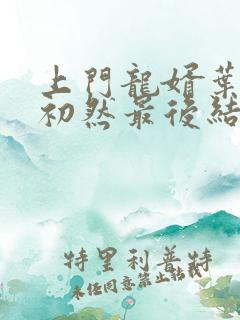 上門龍婿葉
初然最後結
特里利普特
未经同意禁止转载